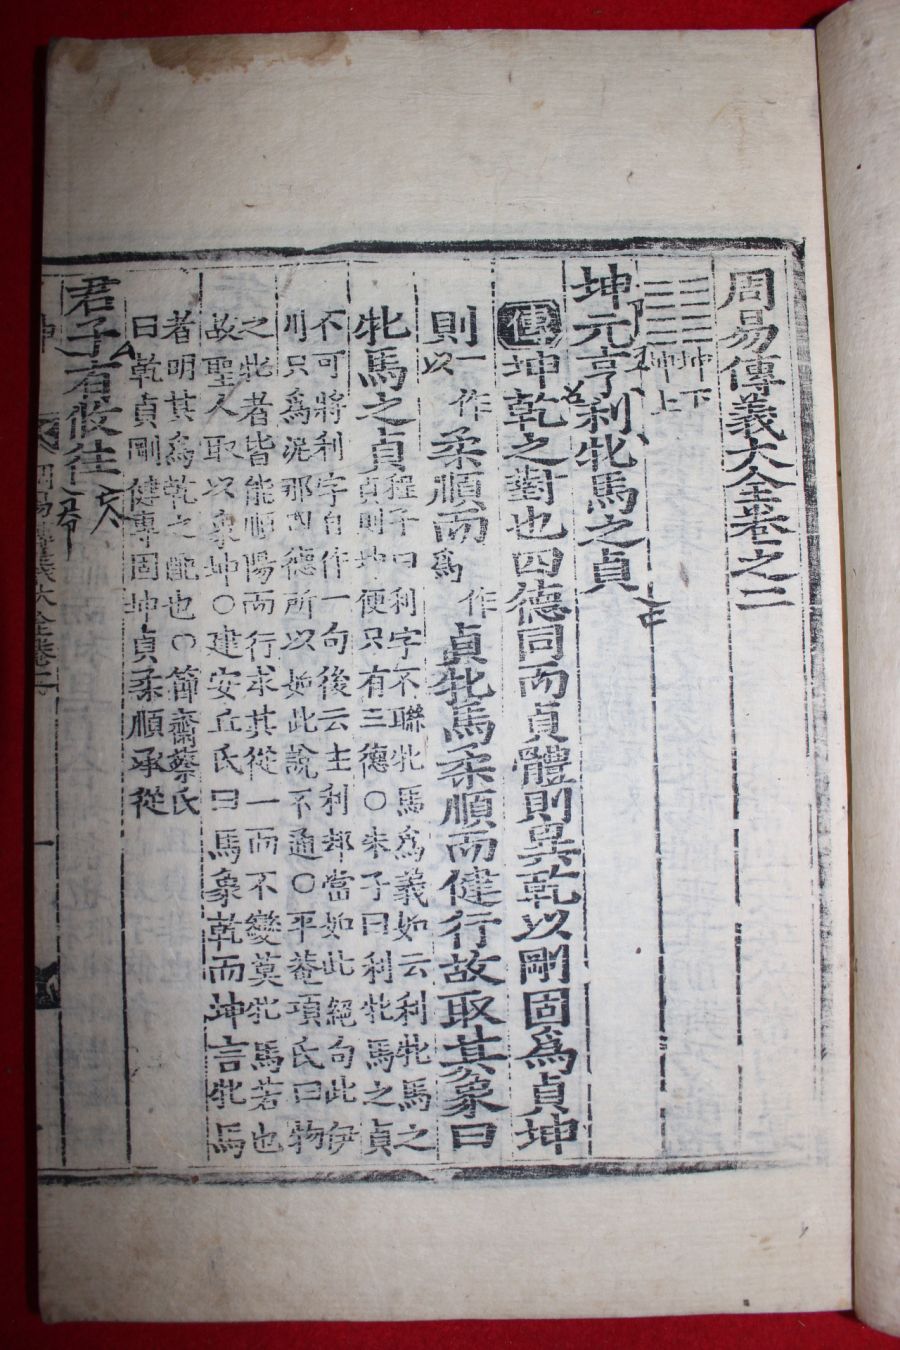 周易傳義大全卷之二
坤下
坤上
坤元亨利牝馬之貞
傳坤乾之對也四德同而貞體則異乾以剛固爲貞坤
則一作以柔順而一作爲貞牝馬柔順而健行故取其象曰
牝馬之貞程子曰利字不聯牝馬爲義如云利牝馬之
貞則坤便只有三德○朱子曰利牝馬之貞
不可將利字自作一句後云主利却當如此絕句此伊
川只爲泥那四德所以如此說不通○平菴項氏曰物
之牝者皆能順陽而行求其從一而不變莫牝馬若也
故聖人取以象坤○建安丘氏曰馬象乾而坤言牝馬
者明其爲乾之配也○節齋蔡氏
曰乾貞剛健專固坤貞柔順承從
君子有攸往